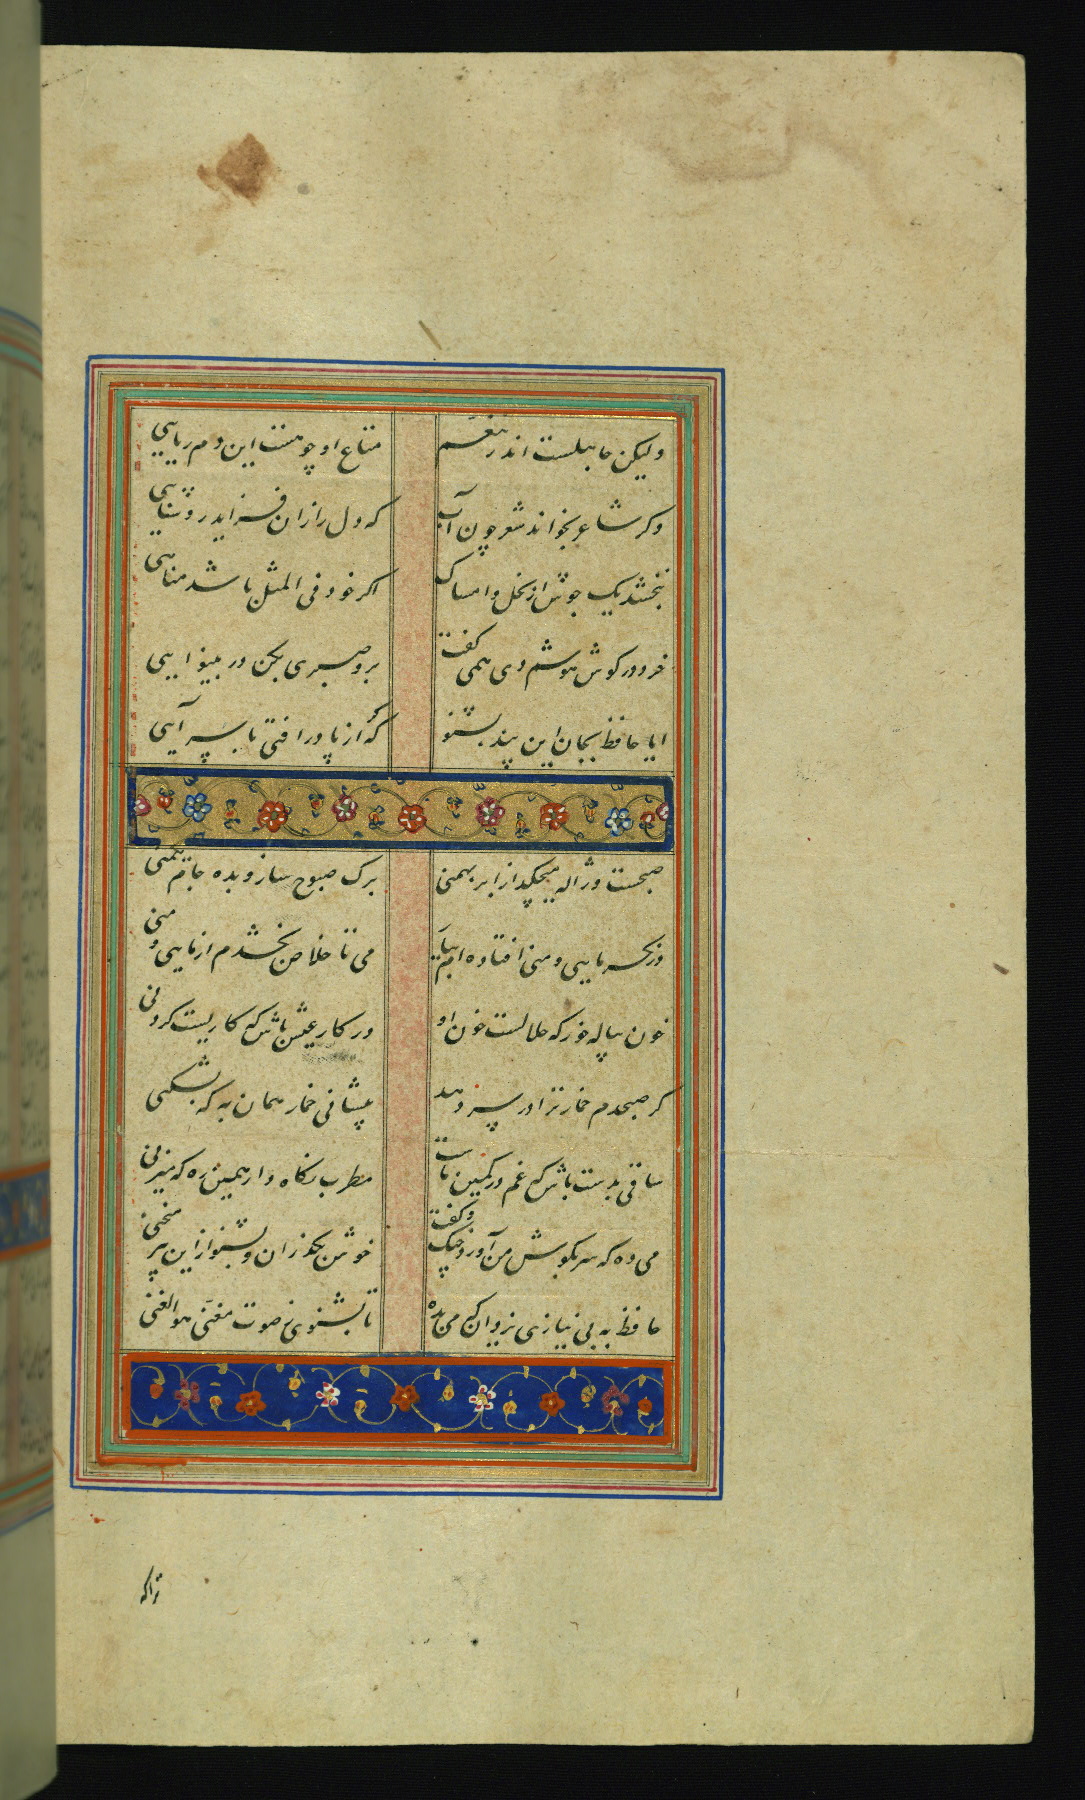 ولیکن جاهلست اندر تنعم متاع او چو هست این دم ریایی
وکر شاعر بخواند شعر چون آب که دل را زان فزاید روشنایی
نبخشندیک جوش از بخل و امساک اکر خود فی المثل باشد سنایی
خرد در کوش هوشم دی همی کفت برو صبری بکن در بینوایی
ایا حافظ بجان این پند بشنو که از پا درافتی با سر آیی
صبحست و ژاله میچکد از ابر بهمنی برک صبوح ساز و بده جام یکمنی
در بحر مایی و منی افتاده ام بیار می تا خلاص بخشدم از مایی و منی
خون پیاله خور که حلالست خون او در کار عیش باش که کاریست کردنی
کر صبحدم خمار ترا درد سر دهد پیشانی خمار همان به که بشکنی
ساقی بدست باش که غم در کمین ماست مطرب نکاه دار همین ره که میزنی
می ده که سر بکوش من آورد چنک و کفت خوش بکذران و بشنو از این پیر منحنی
حافظ به بی نیازی یزدان که می بده تا بشنوی ز صوت مغنی هو الغنی